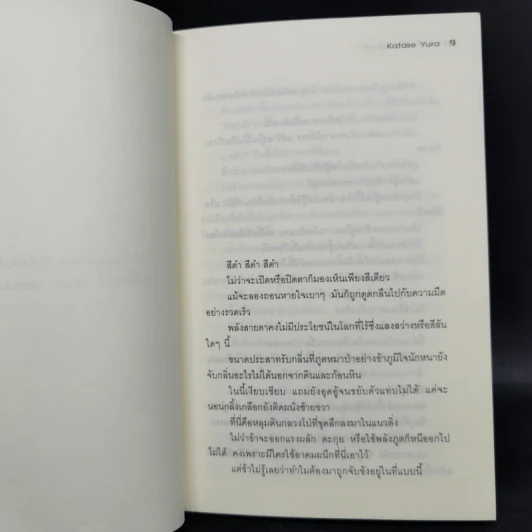 Katase Yura 9
สีดำ สีดำ สีดำ
ไม่ว่าจะเปิดหรือปิดตาก็มองเห็นเพียงสีเดียว
แม้จะลองถอนหายใจเบาๆ มันก็ถูกดูดกลืนไปกับความมืด
อย่างรวดเร็ว
พลังสายตาคงไม่มีประโยชน์ในโลกที่ไร้ซึ่งแสงสว่างหรือสีสัน
ใดๆ นี้
ขนาดประสาทรับกลิ่นที่ภูตหมาป่าอย่างข้าภูมิใจนักหนายัง
จับกลิ่นอะไรไม่ได้นอกจากดินและก้อนหิน
ในนี้เงียบเชียบ แถมยังอุดอู้จนขยับตัวแทบไม่ได้ แค่จะ
นอนกลิ้งเกลือกยังติดผนังซ้ายขวา
ที่นี่คือหลุมดินกลวงโบ๋ที่ขุดลึกลงมาในแนวดิ่ง
ไม่ว่าข้าจะออกแรงผลัก ตะกุย หรือใช้พลังภูตก็หนีออกไป
ไม่ได้ คงเพราะมีใครใช้อาคมผนึกที่นี่เอาไว้
แต่ข้าไม่รู้เลยว่าทำไมต้องมาถูกจับขังอยู่ในที่แบบนี้